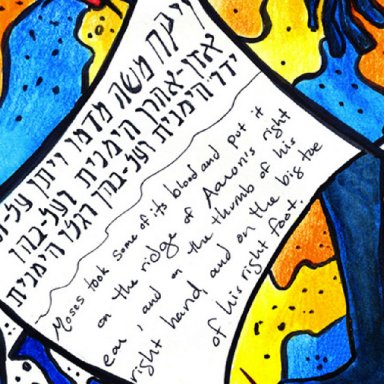 ויקח משה מדמו ויתן על-ת
אזן-אהרן הימנית ועל-בהן
ידו הימנית ועל-בהן רגלו הימנית
Moses took some of its blood and put it
on the ridge of Aaron's right
ear, and on the thumb of his
right hand, and on the big toe
of his right foot.